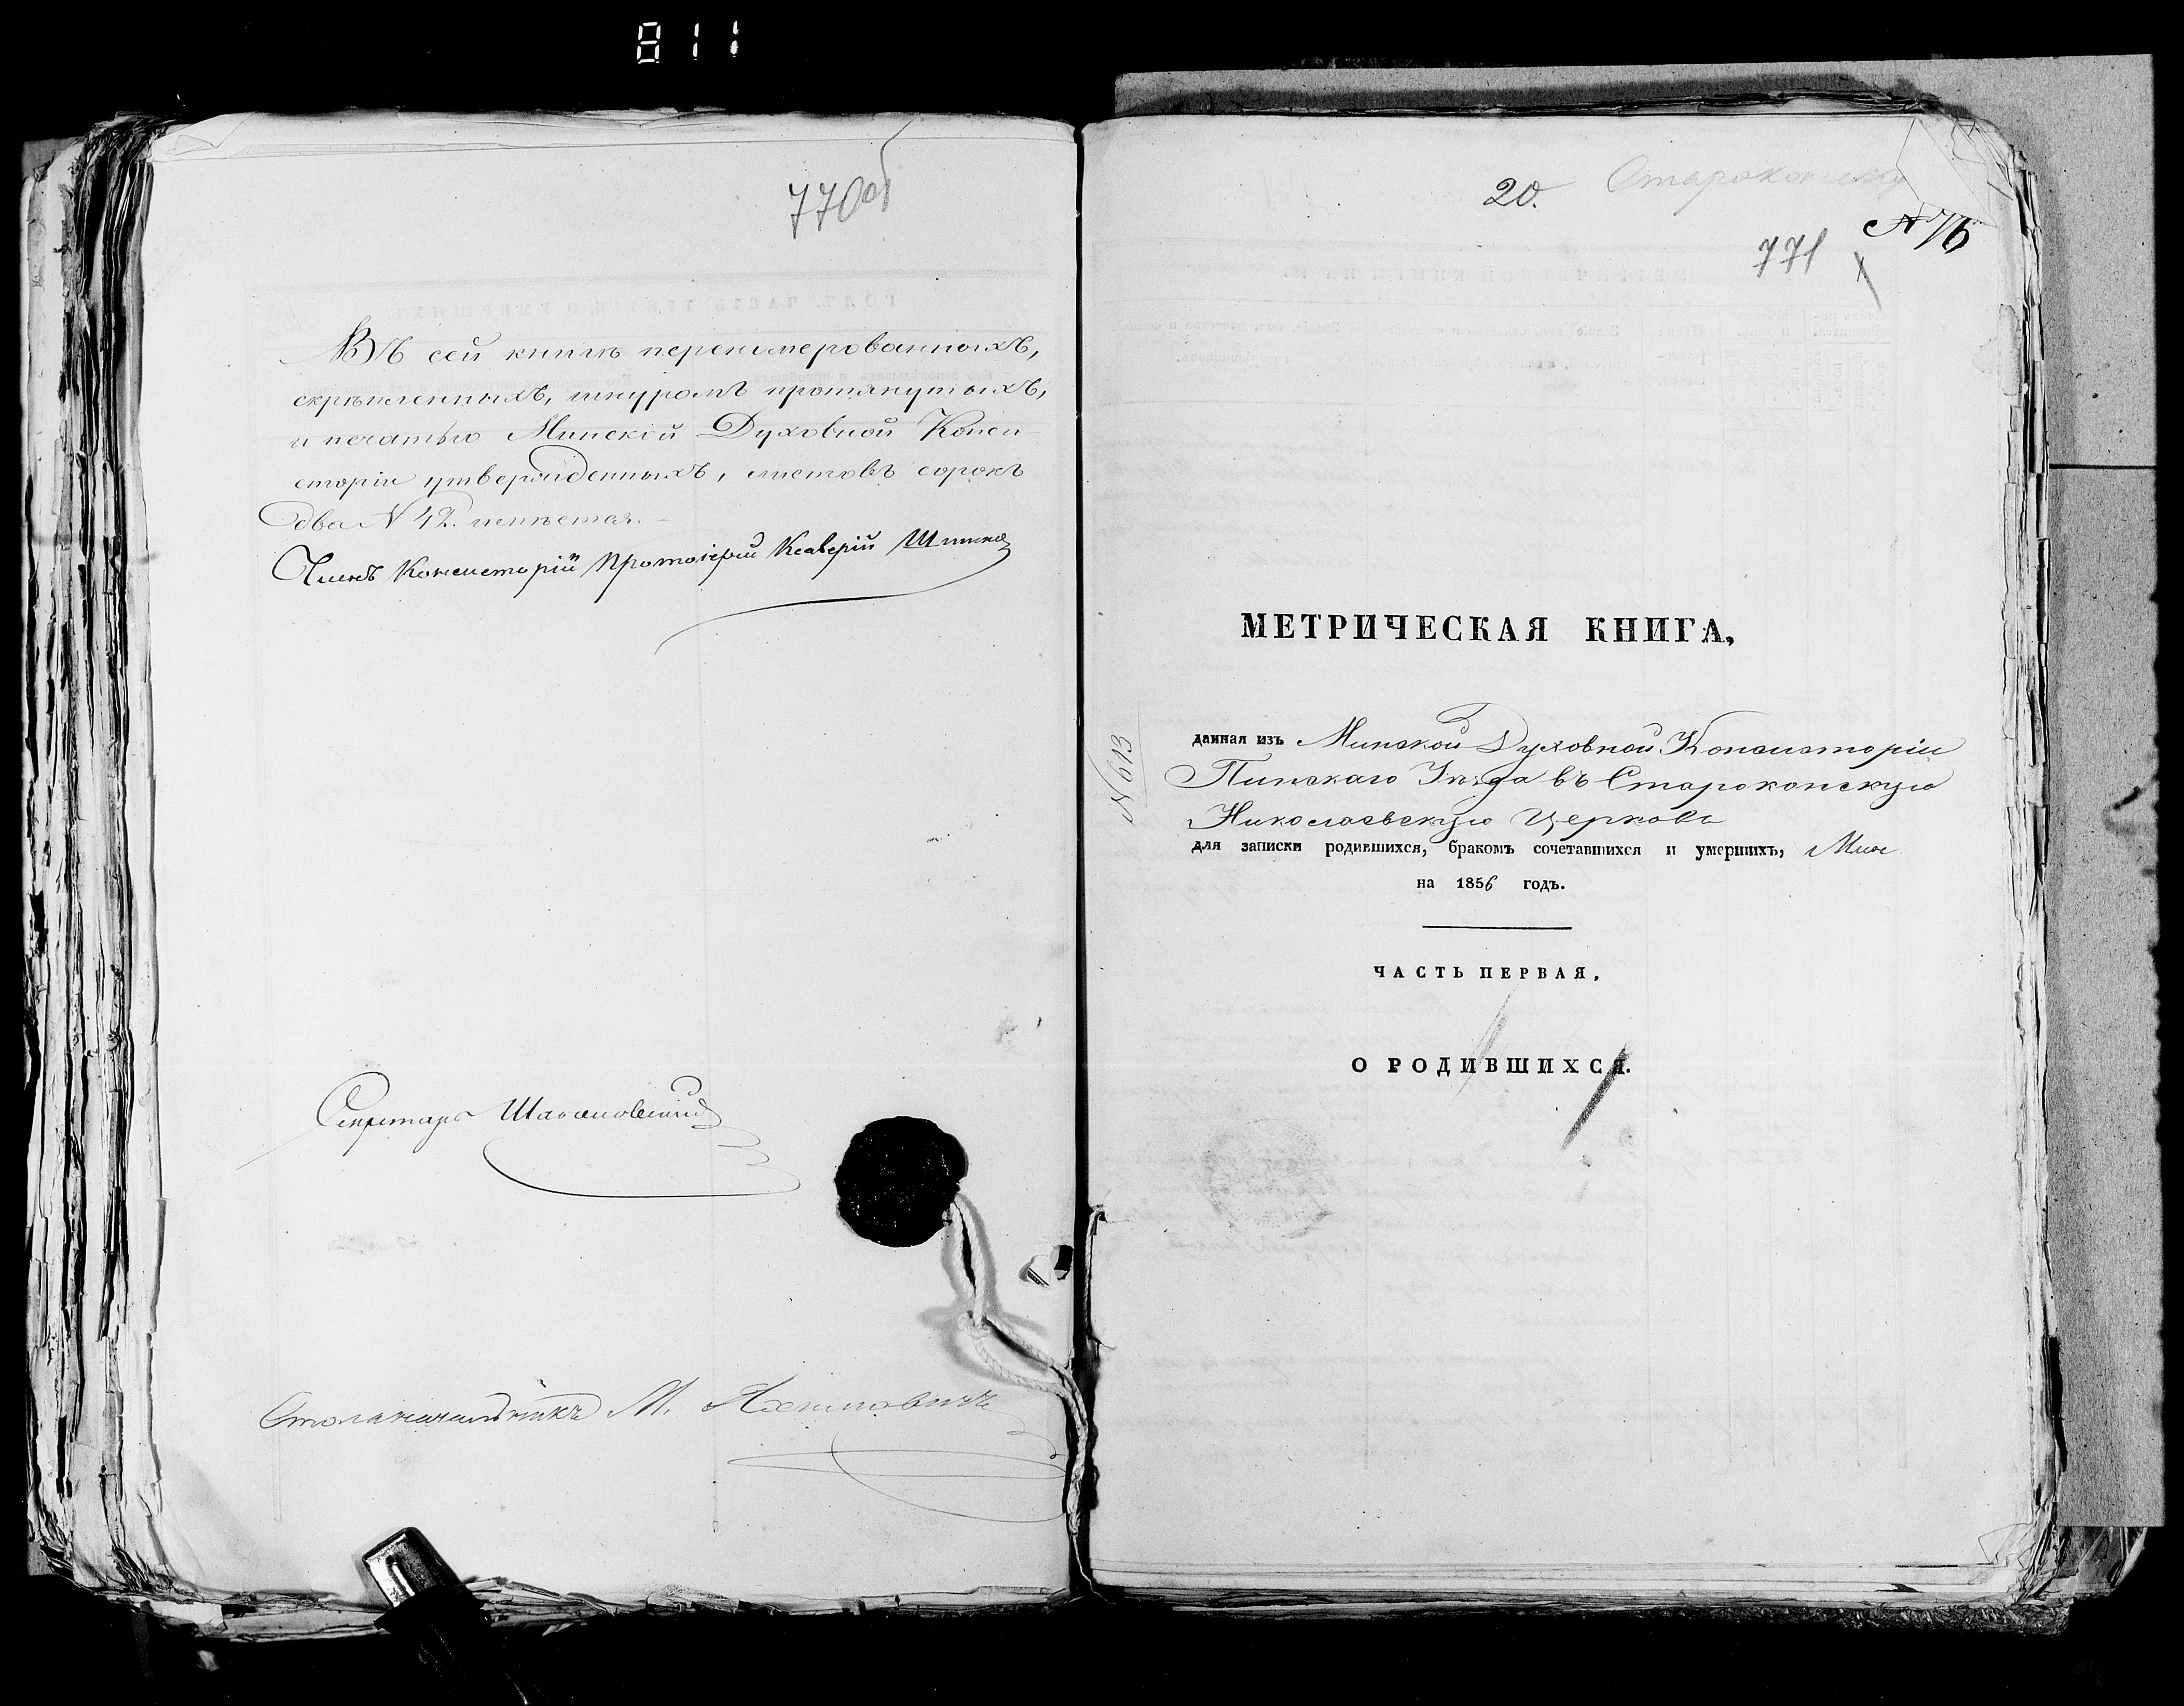 811
770об
Въ сей книгѣ перенумерованныхъ,
скрѣпленныхъ, шнуромъ протянутыхъ,
и печатью Минской Духовной Конси-
сторіи утвержденныхъ, листовъ сорокъ
два N 42. имѣется.
Членъ Консисторіи Протоіерей Ксаверій
Секретарь
Столоначальникъ М.
20.
N 76
771
N 613
МЕТРИЧЕСКАЯ КНИГА,
данная изъ Минской Духовной Консисторіи
Пинскаго Уѣзда въ Староконскую
Николаевскую Церковь
для записки родившихся, бракомъ сочетавшихся и умершихъ,
на 1856 годъ.
ЧАСТЬ ПЕРВАЯ.
О РОДИВШИХСЯ.